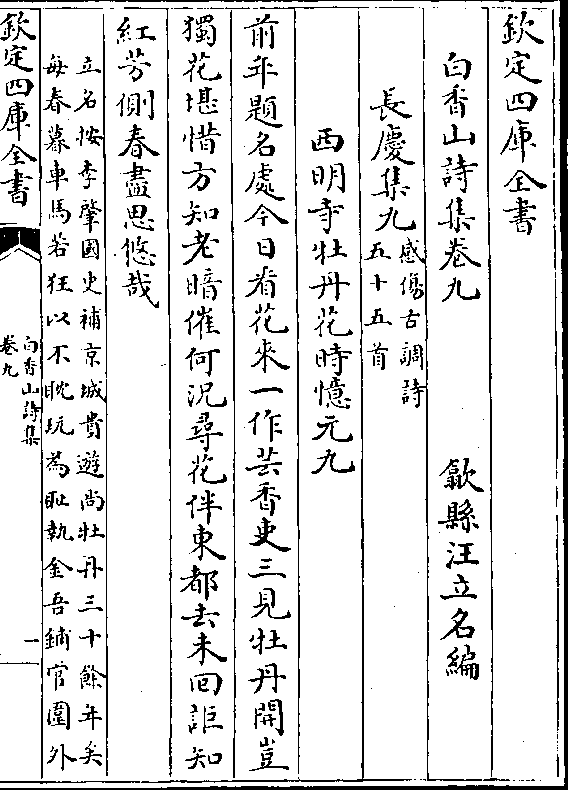 欽定四庫全書
白香山詩集卷九
歙縣汪立名編
長慶集九
感傷古調詩
五十五首
西明寺牡丹花時憶元九
前年題名處今日看花來一作芸香吏三見牡丹開豈
獨花堪惜方知老暗催何況尋花伴東都去未回詎知
紅芳側春盡思悠哉
立名按李肇國史補京城貴遊尚牡丹三十餘年矣
每春暮車馬若狂以不眈玩為耻執金吾鋪官圍外
欽定四庫全書
白香山詩集
卷九
一